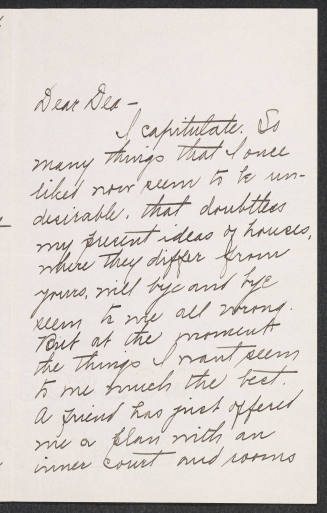 Dear Dea —
I capitulate. So
many things that I once
liked now seem to be un-
desirable, that doubtless
my present ideas of houses,
where they differ from
yours, will bye and bye
seem to me all wrong.
But at the moment
the things I want seem
to me much the best.
A friend has just offered
me a plan with an
inner court and rooms